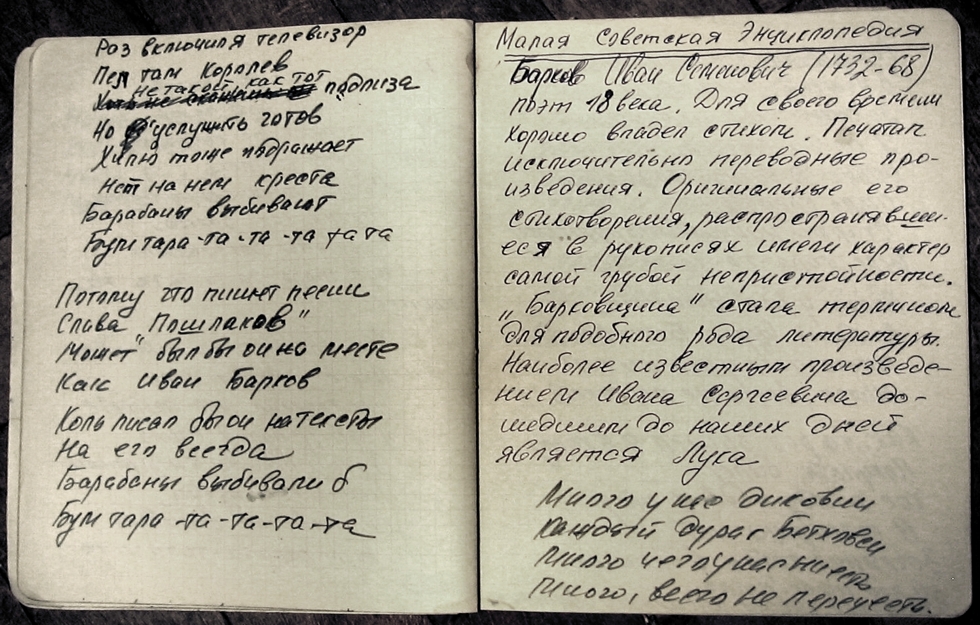 Раз включил я телевизор
Пел там Королев
не такой как тот
подлиза
Но услужить готов
Хилю тоже подражает
Нет на нем креста
Барабаны выбивают
Бум тара-та-та-та та та
Потому что пишет песни
Слава "Пошлаков"
Может был бы он на месте
Как Иван Барков
Коль писал бы он на тексты
На его всегда
Барабаны выбивали б
Бум тара-та-та-та-та
Малая Советская Энциклопедия
Барков Иван Семенович (1732-68)
поэт 18 века. Для своего времени
хорошо владел стихом. Печатал
исключительно переводные про-
изведения. Оригинальные его
стихотворения, распространявши-
еся в рукописях имели характер
самой грубой непристойности.
"Барковщина" стала термином
для подобного рода литературы.
Наиболее известным произведе-
нием Ивана Сергеевича до-
шедшим до наших дней
является Лука
Много у нас диковин
каждый дурак Бетховен
Много чего у нас есть
Много, всего не перечесть.